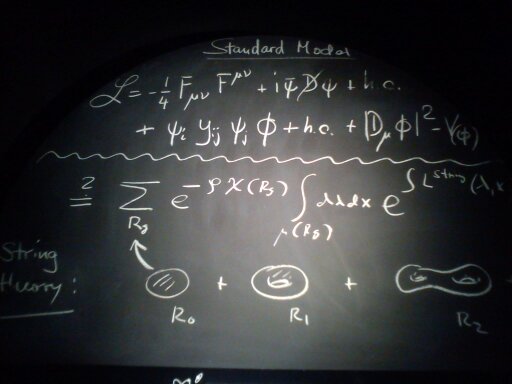 Standard Model
ℒ = -1/4 F_μν F^μν + i ψ̄ D̸ ψ + h.c.
+ ψ_i y_ij ψ_j ϕ + h.c. + |D_μ ϕ|² - V(ϕ)
?= Σ_{R_g} e^{-ρ χ(R_g)} ∫_{μ(R_g)} dλ dx e^{∫ L^{String}(λ, x
String
Theory:
+ + 
R_0 R_1 R_2